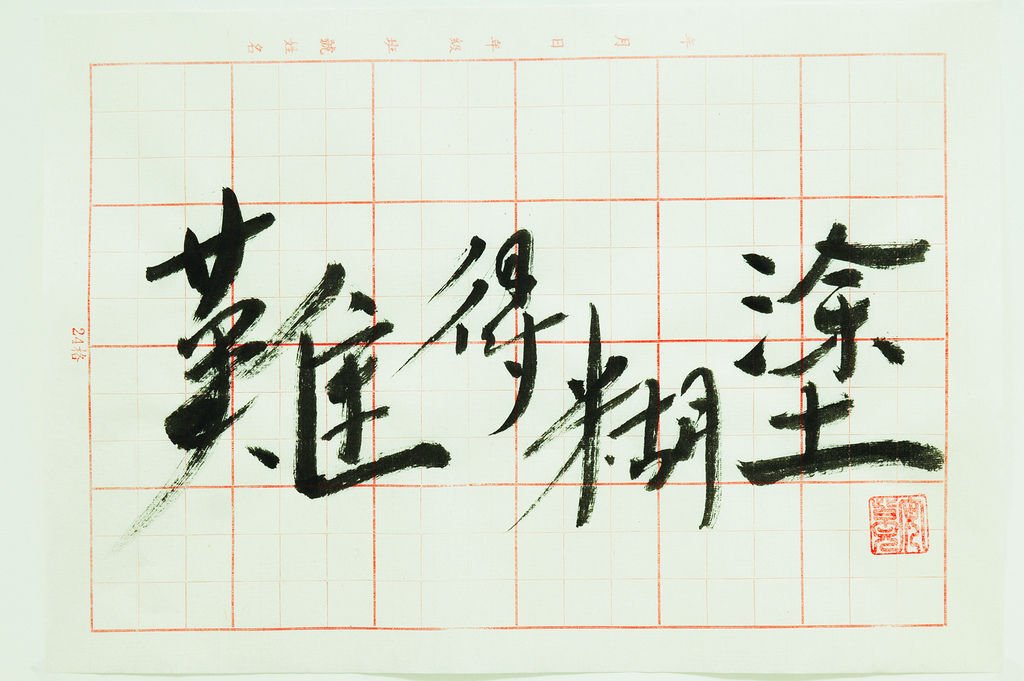 年 月 日 年 級 班 號 姓 名
24格
難得糊塗